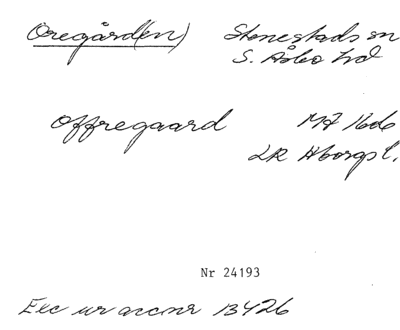 Oregård(en) Stenestads sn
S. Åsbo hd
Offregaard MF 1606
LR Hborgs l.
Nr 24193
Exc ur accnr 13426